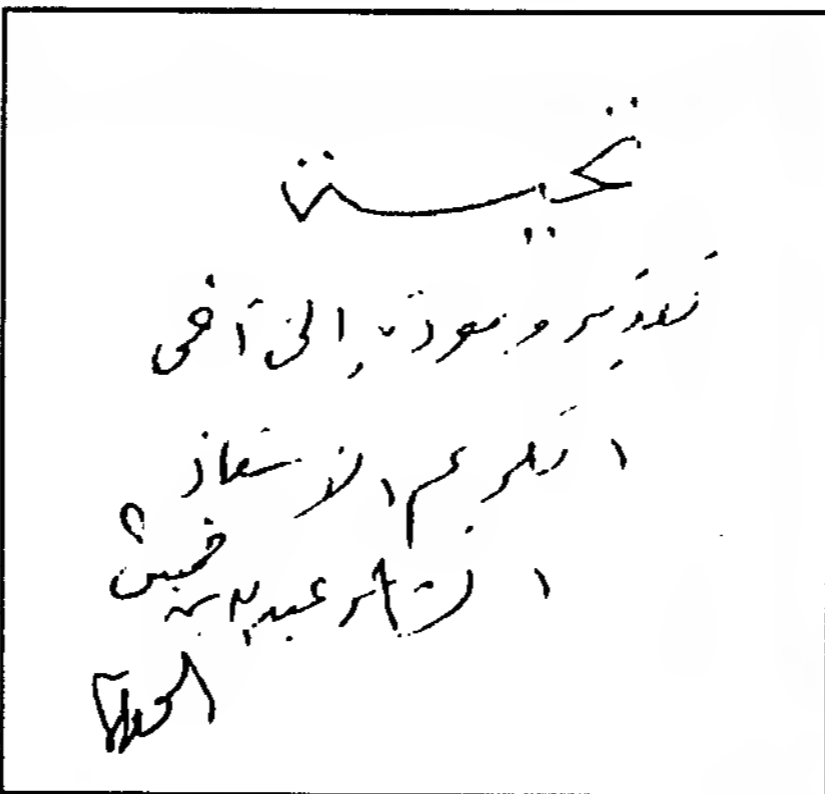 تحية
تقدير ومودة إلى أخي
الكريم الأستاذ
الشاعر عبدالله بن خميس